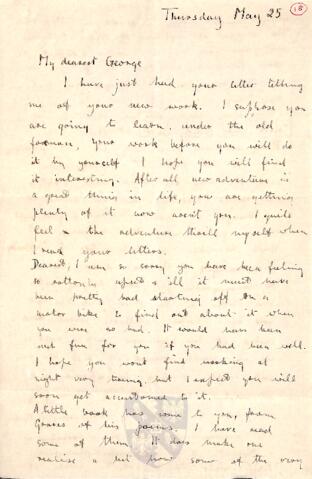 Thursday May 25
18
My dearest George
I have just had your letter telling
me of your new work. I suppose you
are going to learn, under the old
foreman, your work before you will do
it by yourself. I hope you will find
it interesting. After all new adventure is
a good thing in life, you are getting
plenty of it now aren't you. I quite
feel the adventure thrill myself when
I read your letters.
Dearest, I am so sorry you have been feeling
so rotten & ill it must have
been pretty bad starting off on a
motor bike to find out about it when
you were so bad. It would have been
just fun for you if you had been well.
I hope you wont find working at
night very tiring, but I expect you will
soon get accustomed to it.
A little book has come to you, from
Graves of his poems. I have read
some of them. It does make one
realise a bit how some of the very